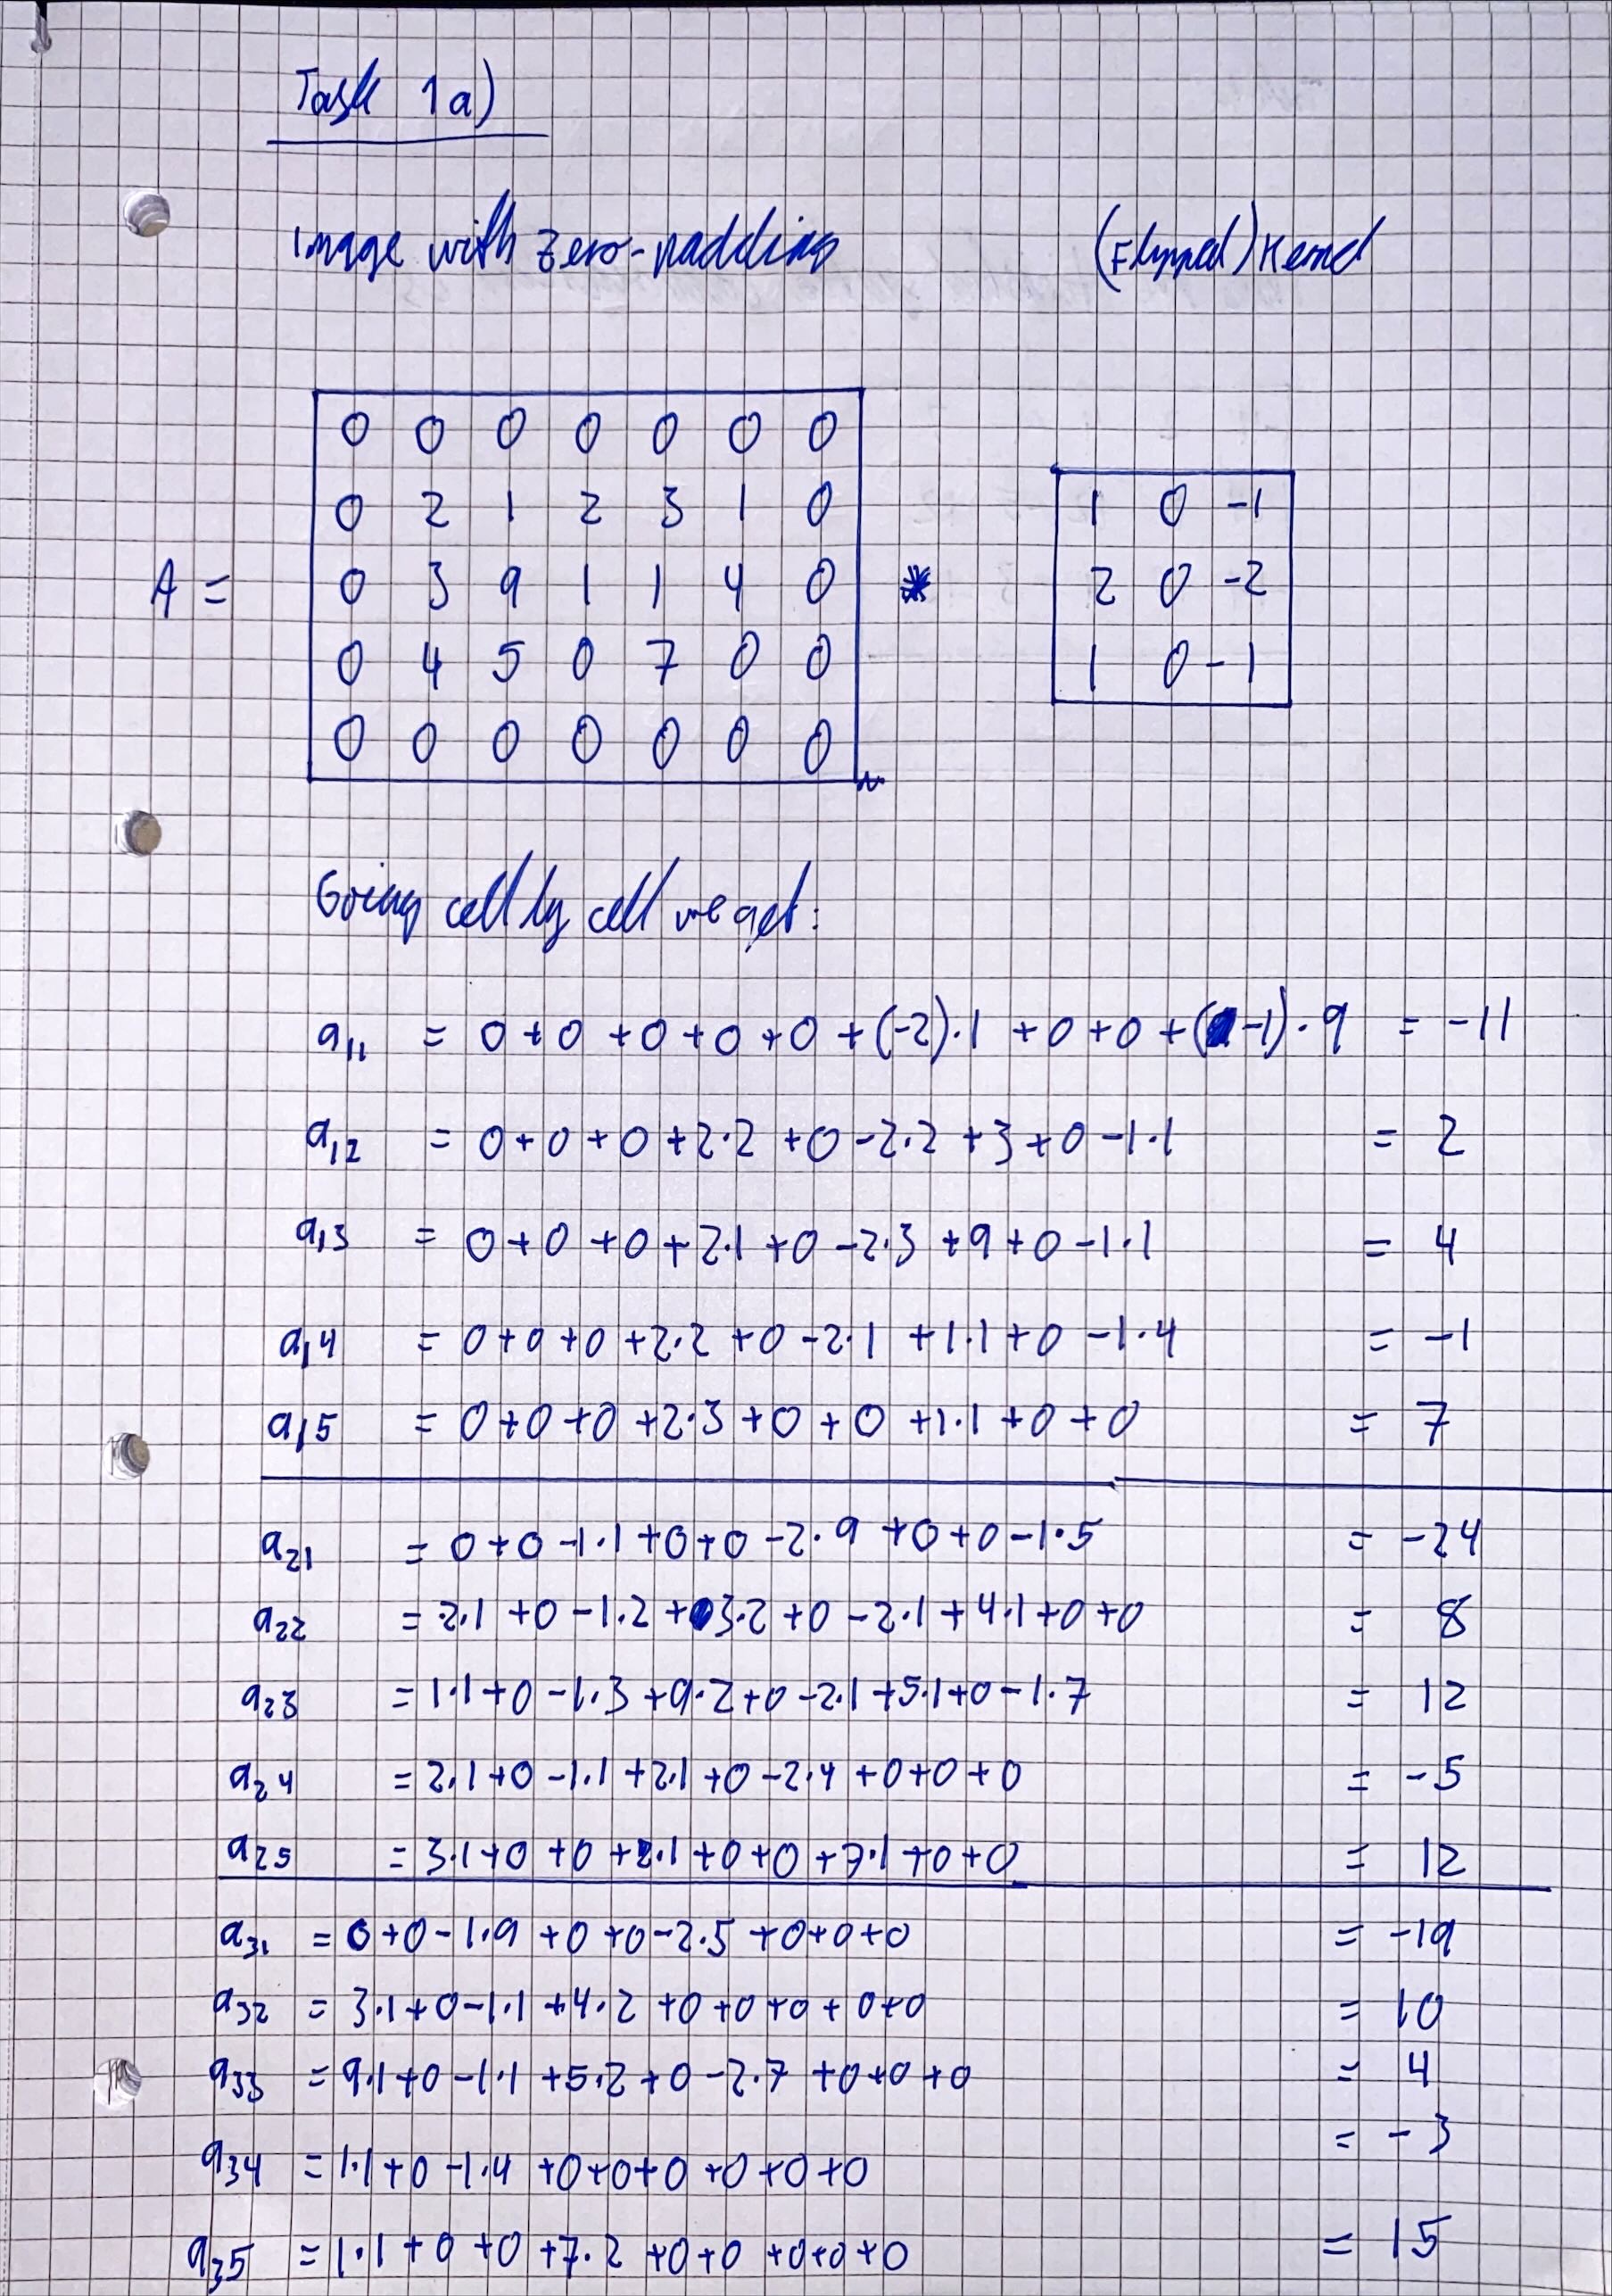 Task 1a)
Image with zero-padding (Flipped) Kernel
0 0 0 0 0 0 0
0 2 1 2 3 1 0 1 0 -1
A = 0 3 9 1 1 4 0 * 2 0 -2
0 4 5 0 7 0 0 1 0 -1
0 0 0 0 0 0 0
Going cell by cell we get:
a11 = 0+0+0+0+0+(-2)·1+0+0+(-1)·9 = -11
a12 = 0+0+0+2·2+0-2·2+3+0-1·1 = 2
a13 = 0+0+0+2·1+0-2·3+9+0-1·1 = 4
a14 = 0+0+0+2·2+0-2·1+1·1+0-1·4 = -1
a15 = 0+0+0+2·3+0+0+1·1+0+0 = 7
a21 = 0+0-1·1+0+0-2·9+0+0-1·5 = -24
a22 = 2·1+0-1·2+3·2+0-2·1+4·1+0+0 = 8
a23 = 1·1+0-1·3+9·2+0-2·1+5·1+0-1·7 = 12
a24 = 2·1+0-1·1+2·1+0-2·4+0+0+0 = -5
a25 = 3·1+0+0+2·1+0+0+7·1+0+0 = 12
a31 = 0+0-1·9+0+0-2·5+0+0+0 = -19
a32 = 3·1+0-1·1+4·2+0+0+0+0+0 = 10
a33 = 9·1+0-1·1+5·2+0-2·7+0+0+0 = 4
a34 = 1·1+0-1·4+0+0+0+0+0+0 = -3
a35 = 1·1+0+0+7·2+0+0+0+0+0 = 15